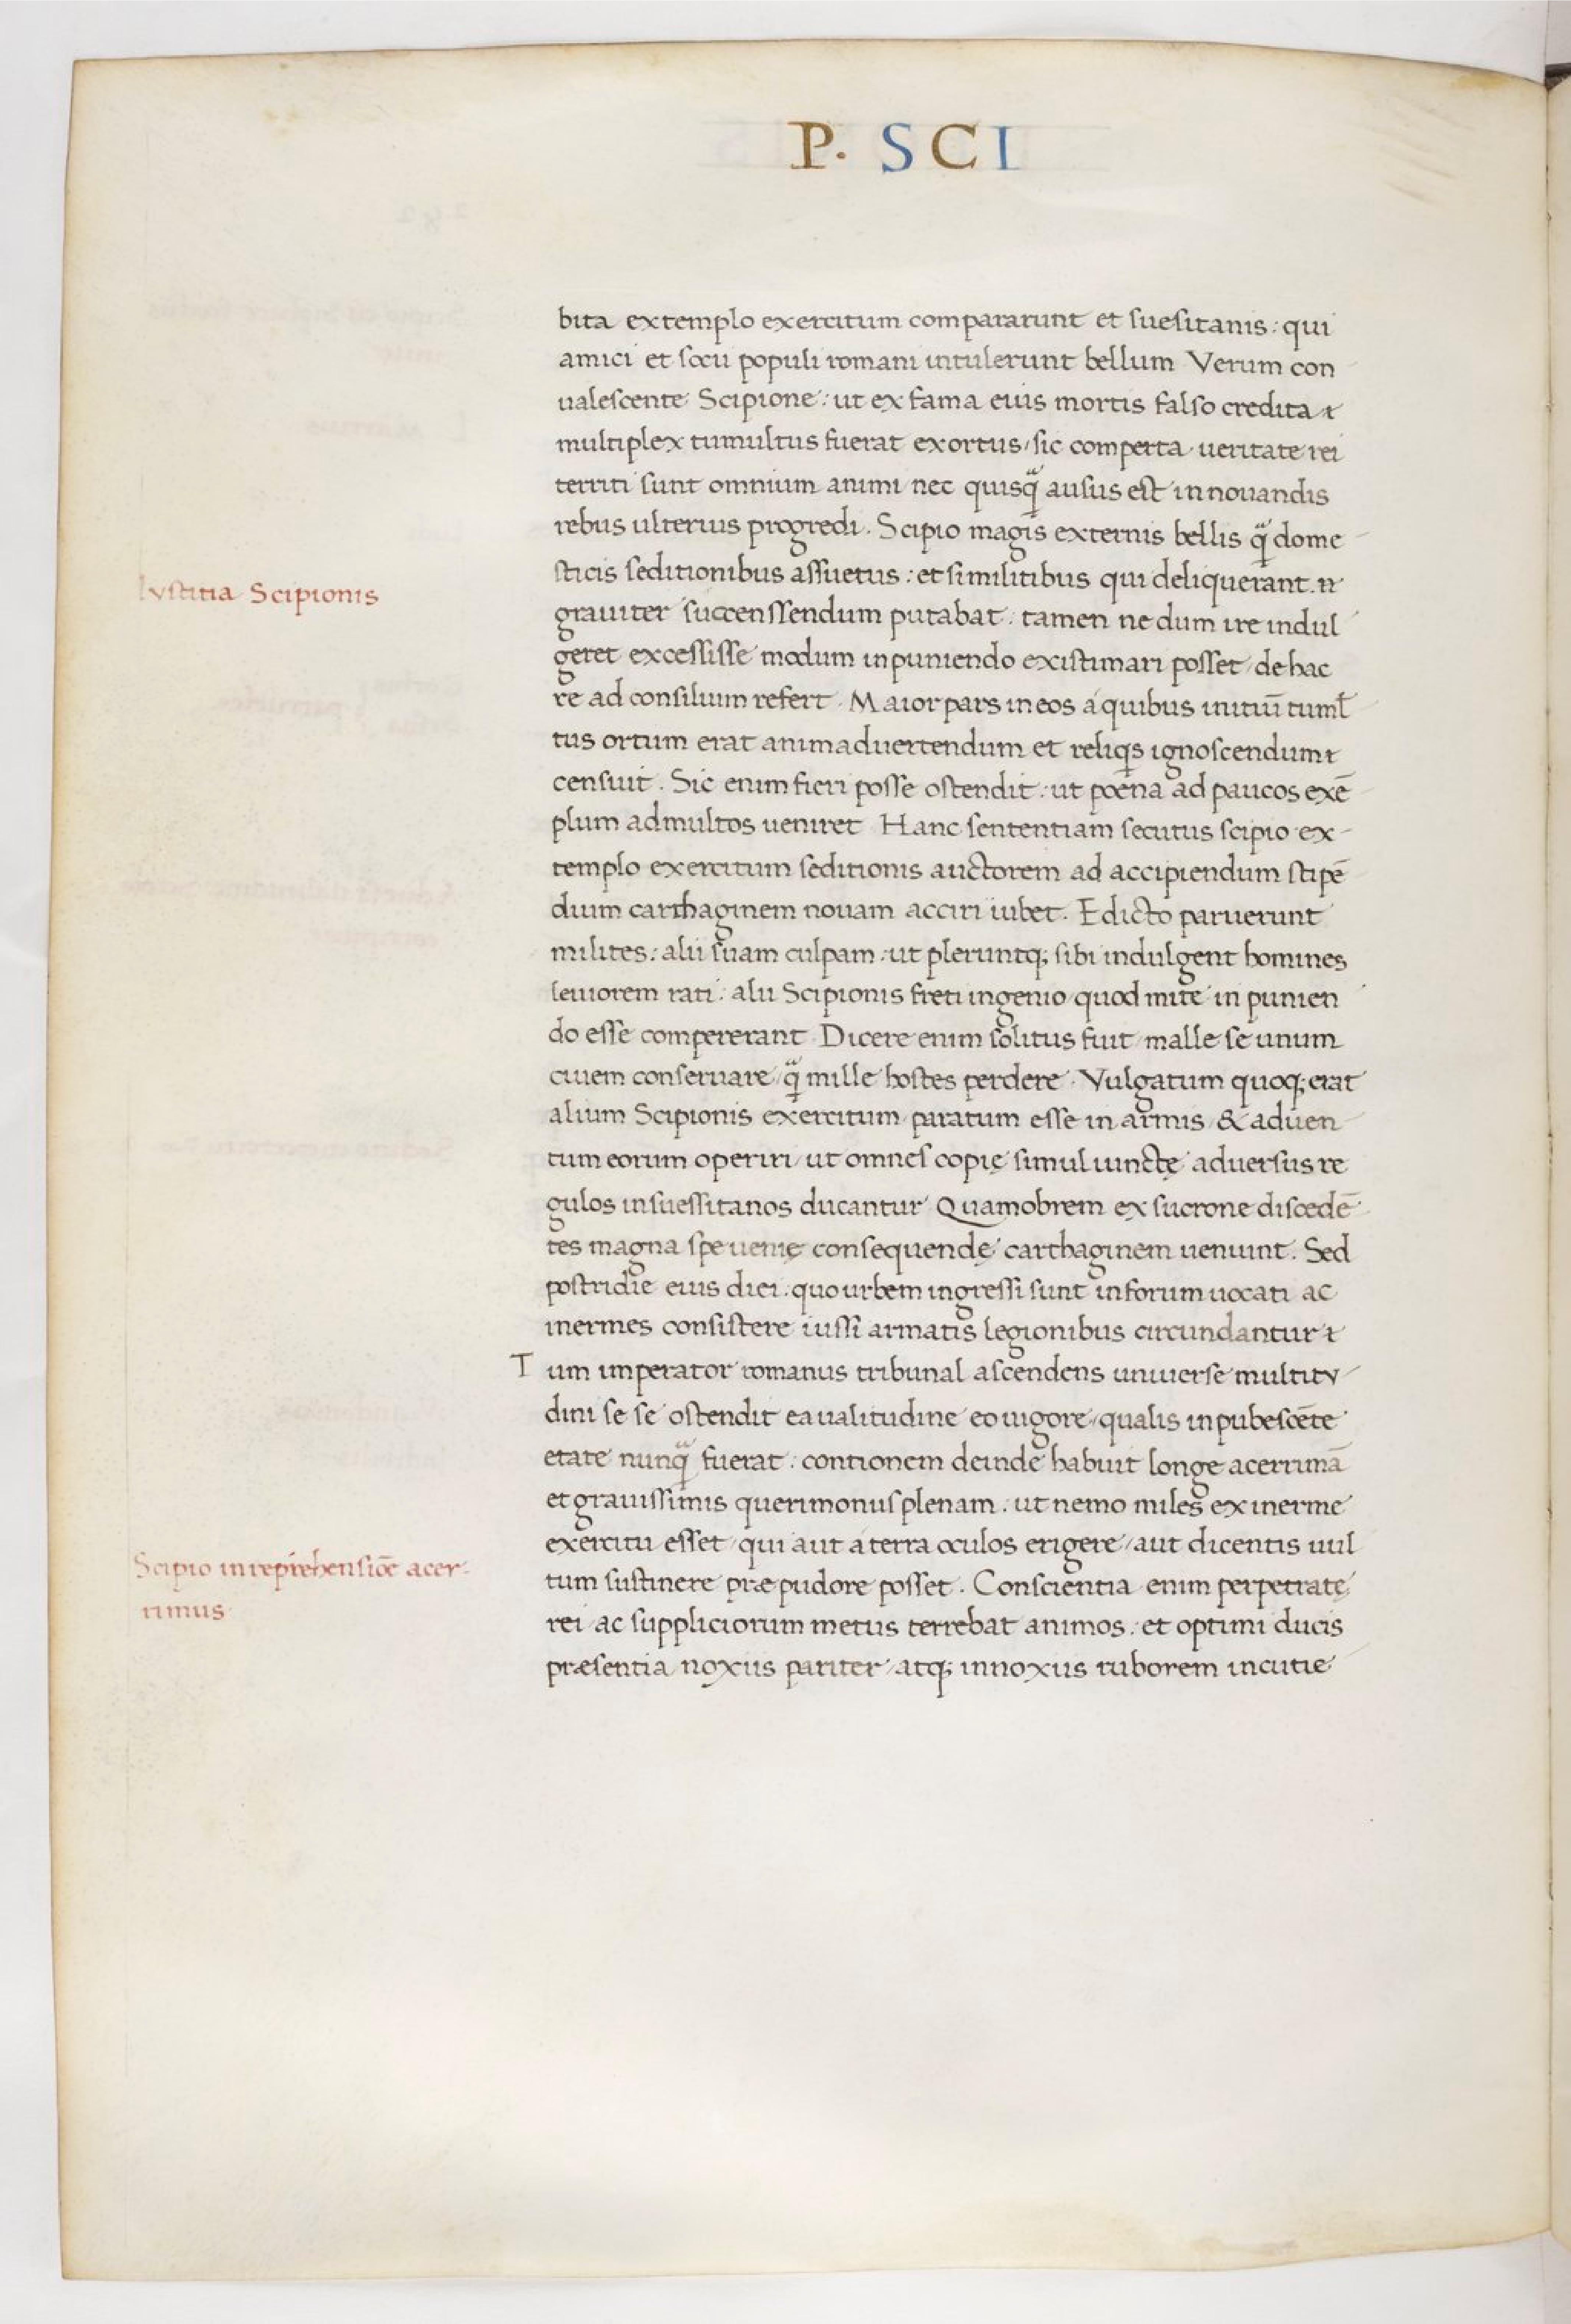 P. SCI
bita extemplo exercitum compararunt et suesitanis: qui
amici et socii populi romani intulerunt bellum Verum con
ualescente Scipione: ut ex fama eius mortis falso credita
multiplex tumultus fuerat exortus, sic comperta ueritate rei
territi sunt omnium animi nec quisq̃ ausus est in nouandis
rebus ulterius progredi. Scipio magis externis bellis q̃ dome
Iustitia Scipionis
sticis seditionibus assuetus: et si militibus qui deliquerant. n̄
grauiter succenssendum putabat: tamen ne dum ire indul
geret excessisse modum in puniendo existimari posset, de hac
re ad consilium refert. Maior pars in eos á quibus initiū tuml̃
tus ortum erat animaduertendum et reliq̃s ignoscendum
censuit. Sic enim fieri posse ostendit: ut poena ad paucos exē
plum ad multos ueniret Hanc sententiam secutus scipio ex-
templo exercitum seditionis auctorem ad accipiendum stipē
dium carthaginem nouam acciri iubet. Edicto paruerunt
milites: alii suam culpam: ut pleruntq; sibi indulgent homines
leuiorem rati: alii Scipionis freti ingenio, quod mite in punien
do esse compererant. Dicere enim solitus fuit, malle se unum
ciuem conseruare, q̃ mille hostes perdere. Vulgatum quoq; erat
alium Scipionis exercitum, paratum esse in armis, & aduen
tum eorum operiri, ut omnes copię simul iunctę aduersus re
gulos in suessitanos ducantur Quamobrem ex sucrone discedē
tes magna spe uenię consequendę carthaginem ueniunt. Sed
postridie eius diei: quo urbem ingressi sunt in forum uocati ac
inermes consistere iussi armatis legionibus circundantur
Tum imperator romanus tribunal ascendens uniuerse multitu
dini se se ostendit ea ualitudine eo uigore, qualis in pubescēte
etate nunq̃ fuerat: contionem deinde habuit longe acerrimā
et grauissimis querimoniis plenam: ut nemo miles ex inerme
exercitu esset, qui aut a terra oculos erigere, aut dicentis uul
Scipio in reprehensiōe acer-
rimus
tum sustinere præ pudore posset. Conscientia enim perpetratę
rei, ac suppliciorum metus terrebat animos: et optimi ducis
præsentia noxiis pariter, atq; innoxiis ruborem incutie